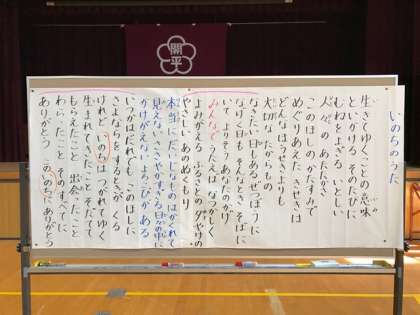 開平
いのちのうた
生きてゆくことの 意味
といかける そのたびに
むねをよぎる いとしい
人々の あたたかさ
このほしの かたすみで
めぐりあえた きせきは
どんなほうせきよりも
大切な たからもの
なきたい 日もある ぜつぼうに
なげく日も そんなとき そばに
いて よりそう あなたのかげ
みんなで うたえば なつかしく
よみがえる ふるさとの ゆうやけの
やさしい あのぬくもり
本当に だいじなものは かくれて
見えない ささやかすぎる 日々の中に
かけがえない よろこびがある
いつかはだれでも このほしに
さよならを するときが くる
けれど いのちは つがれてゆく
生まれてきたこと そだてて
もらえたこと 出会ったこと
わらったこと そのすべてに
ありがとう このいのちに ありがとう